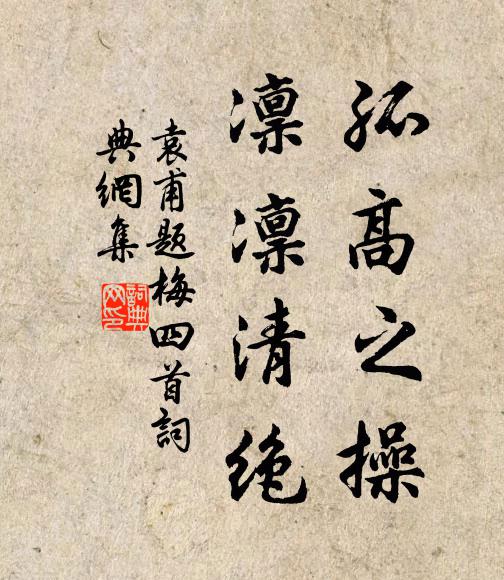 孤高之操
凛凛清绝
袁甫题梅四首詞
典網集
詞典
网印